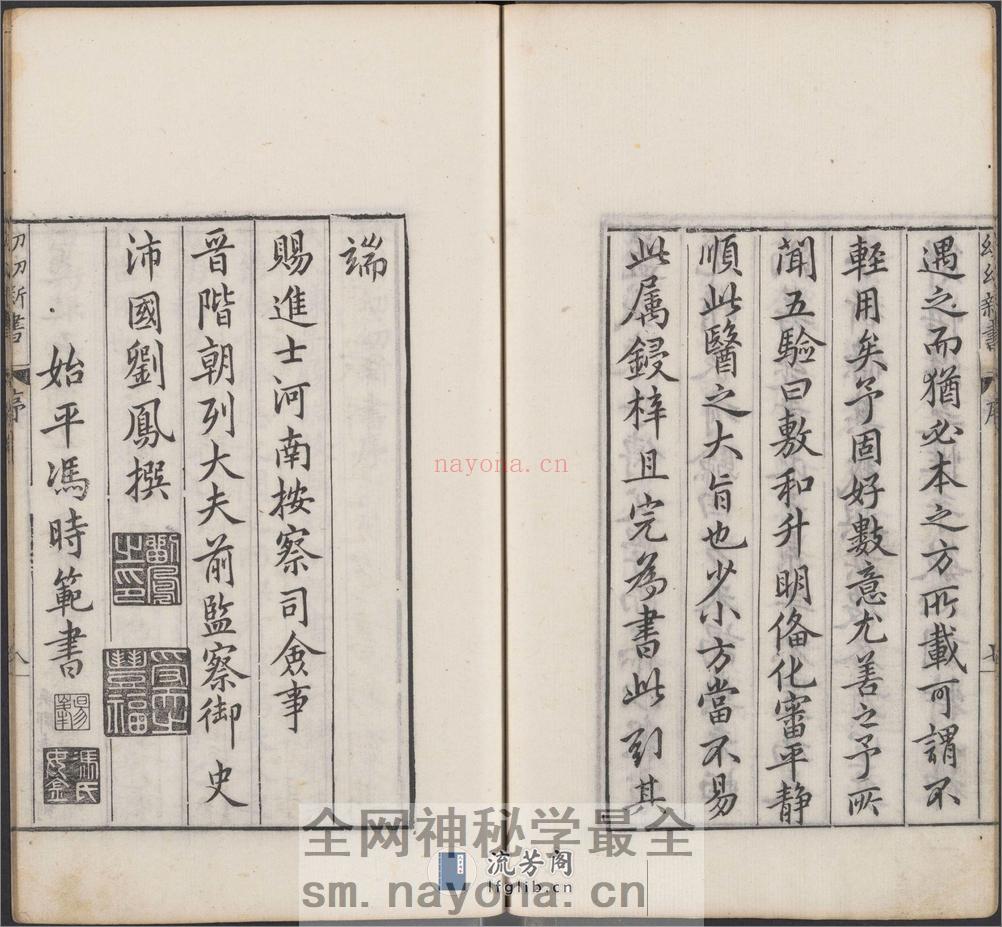 遇之而猶必本之方所載可謂不
輕用矣予固好數意尤善之予所
聞五驗曰敷和升明俻化審平静
順此醫之大旨也少小方當不易
此属鋟梓且完為書此引其
端
賜進士河南按察司僉事
晉階朝列大夫前監察御史
沛國劉鳳撰
劉鳳之印
始平馮時範書
馮氏
幼幼新書
序
八
幼幼新書
序
七
nayona.cn
全网神秘学最全
流芳阁
lfglib.cn
sm.nayona.cn